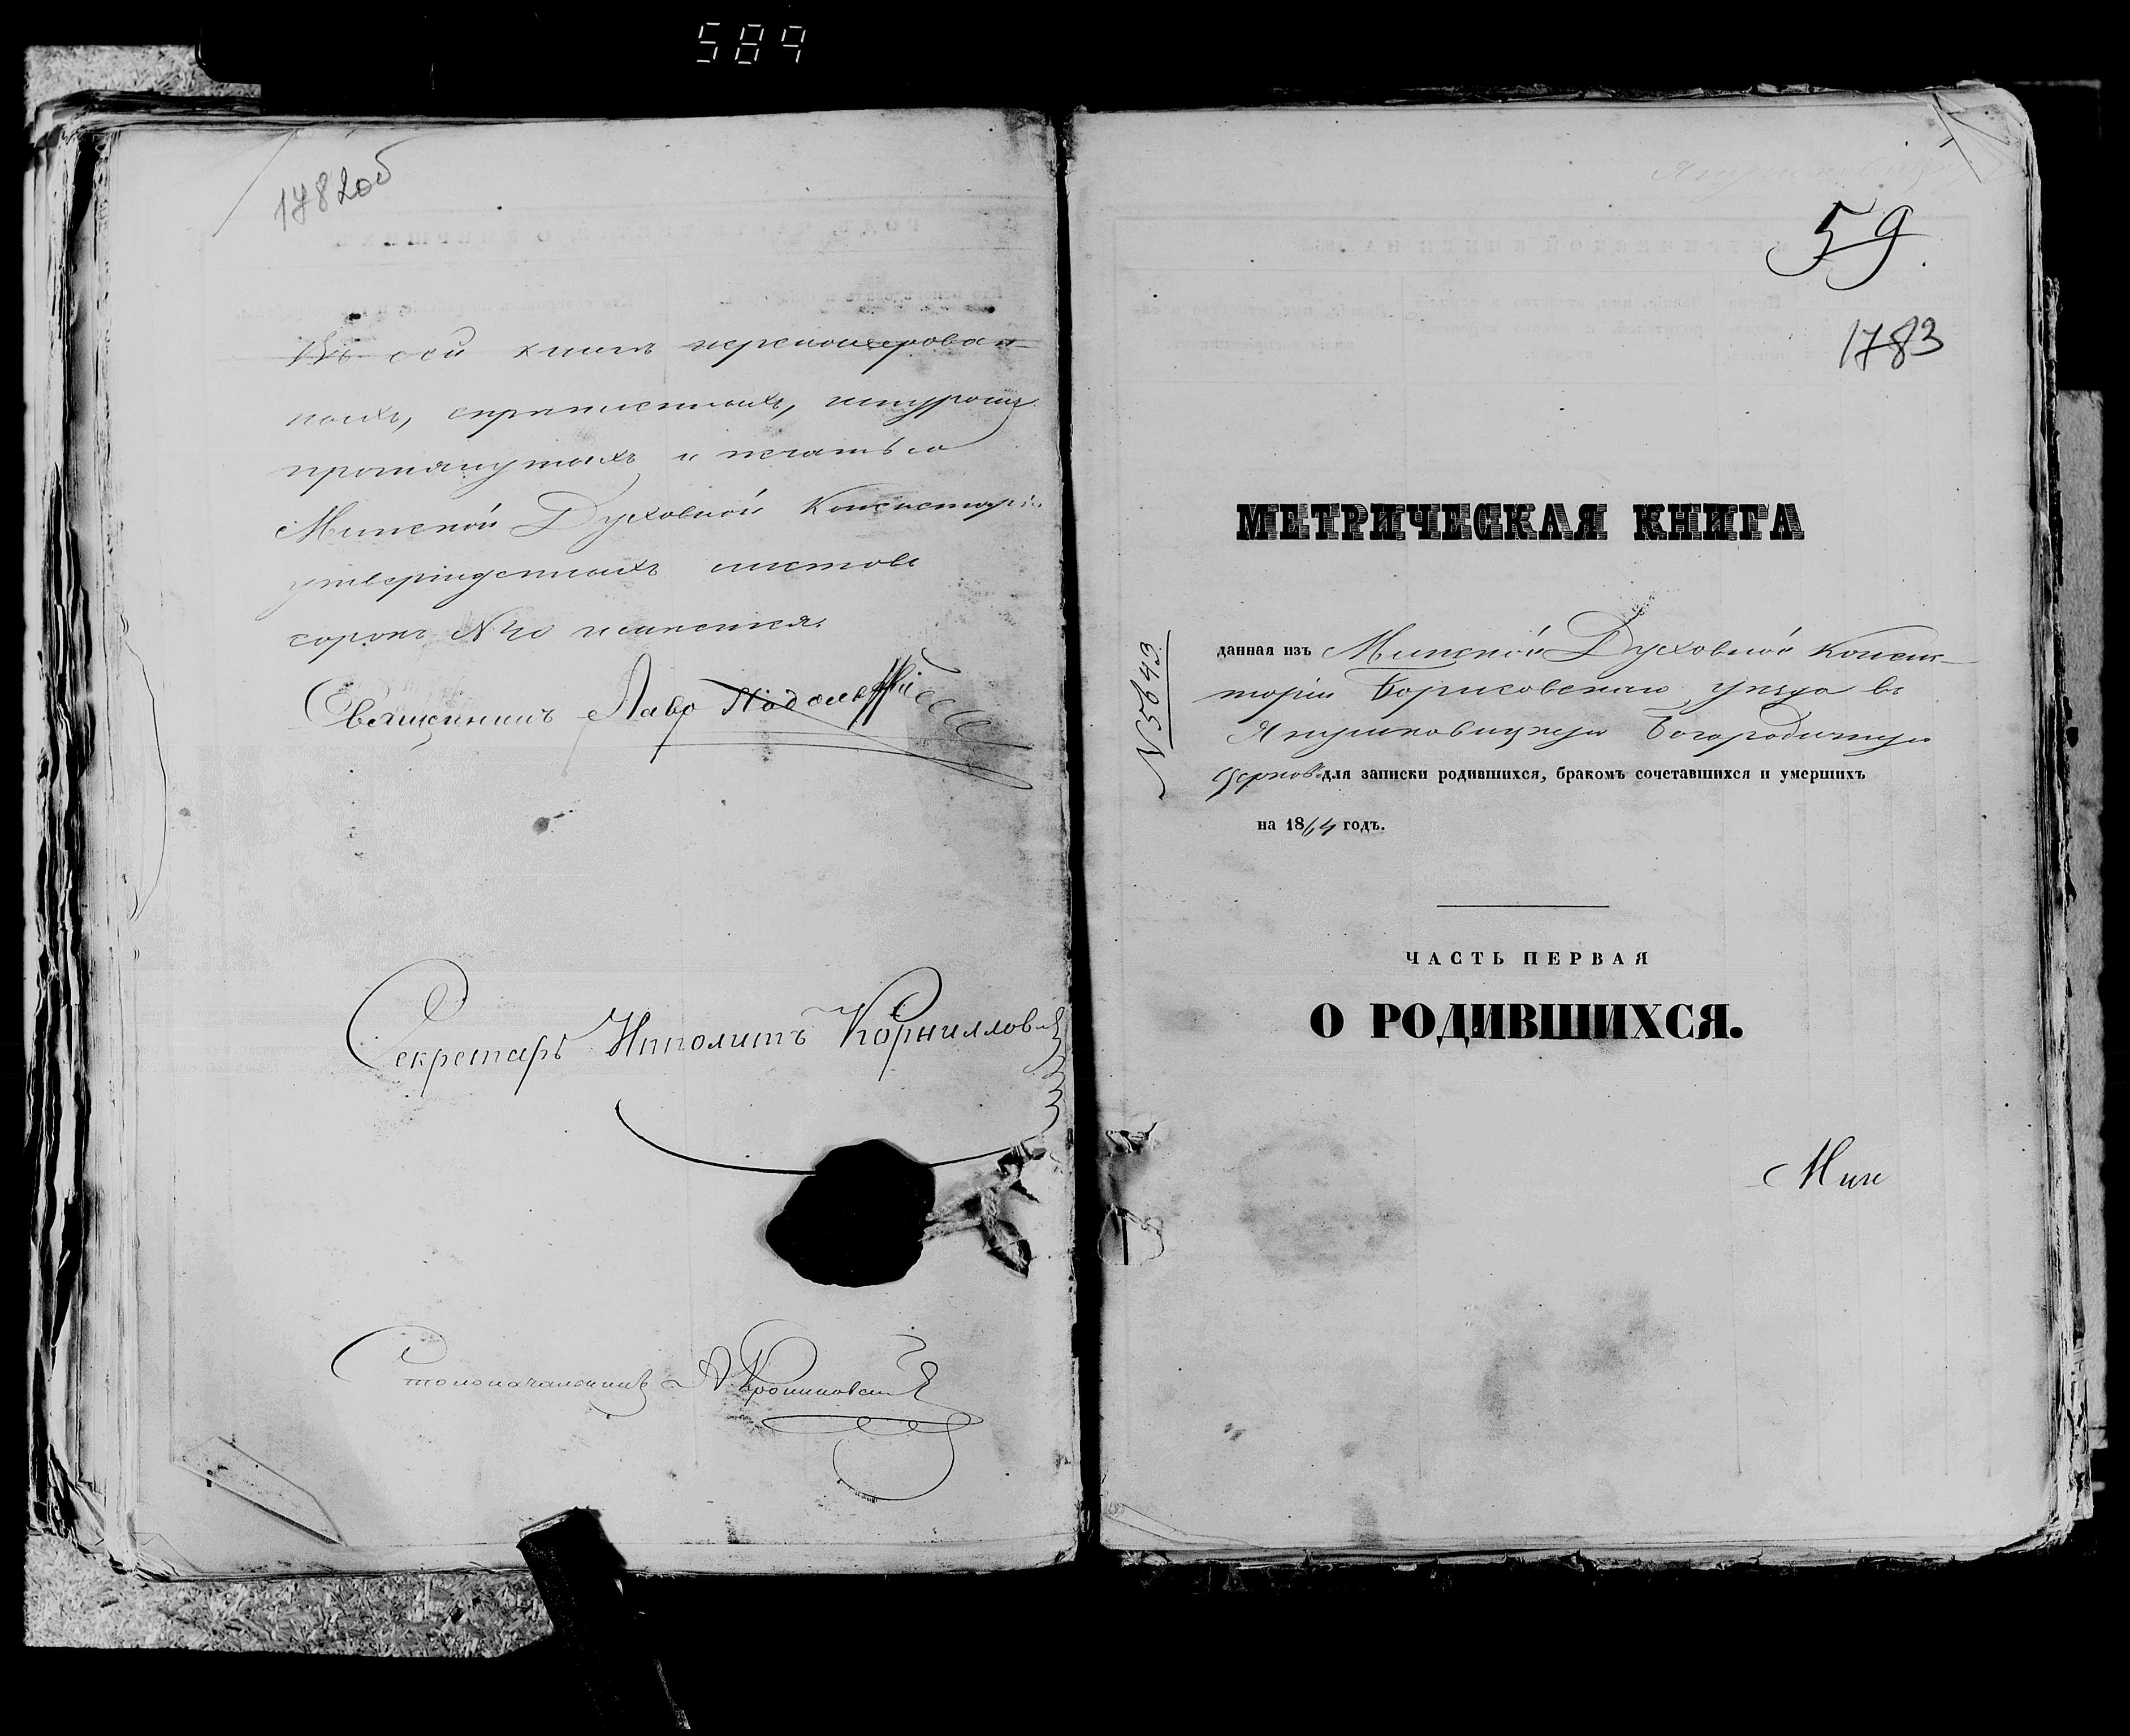 589
1782об
Въ сей книгѣ переномерован-
ныхъ, скрѣпленныхъ, шнуромъ
протянутыхъ и печатью
Минской Духовной Консисторіи
утвержденныхъ листовъ
сорокъ N 40 имеется.
Священникъ
Секретарь Ипполитъ Корниллов
Столоначальникъ А
59
1783
МЕТРИЧЕСКАЯ КНИГА
N 5643
данная изъ Минской Духовной Консис-
торіи Борисовскаго уѣзда въ
Богородичную
церковь для записки родившихся, бракомъ сочетавшихся и умершихъ
на 1864 годъ.
ЧАСТЬ ПЕРВАЯ
О РОДИВШИХСЯ.
Мин